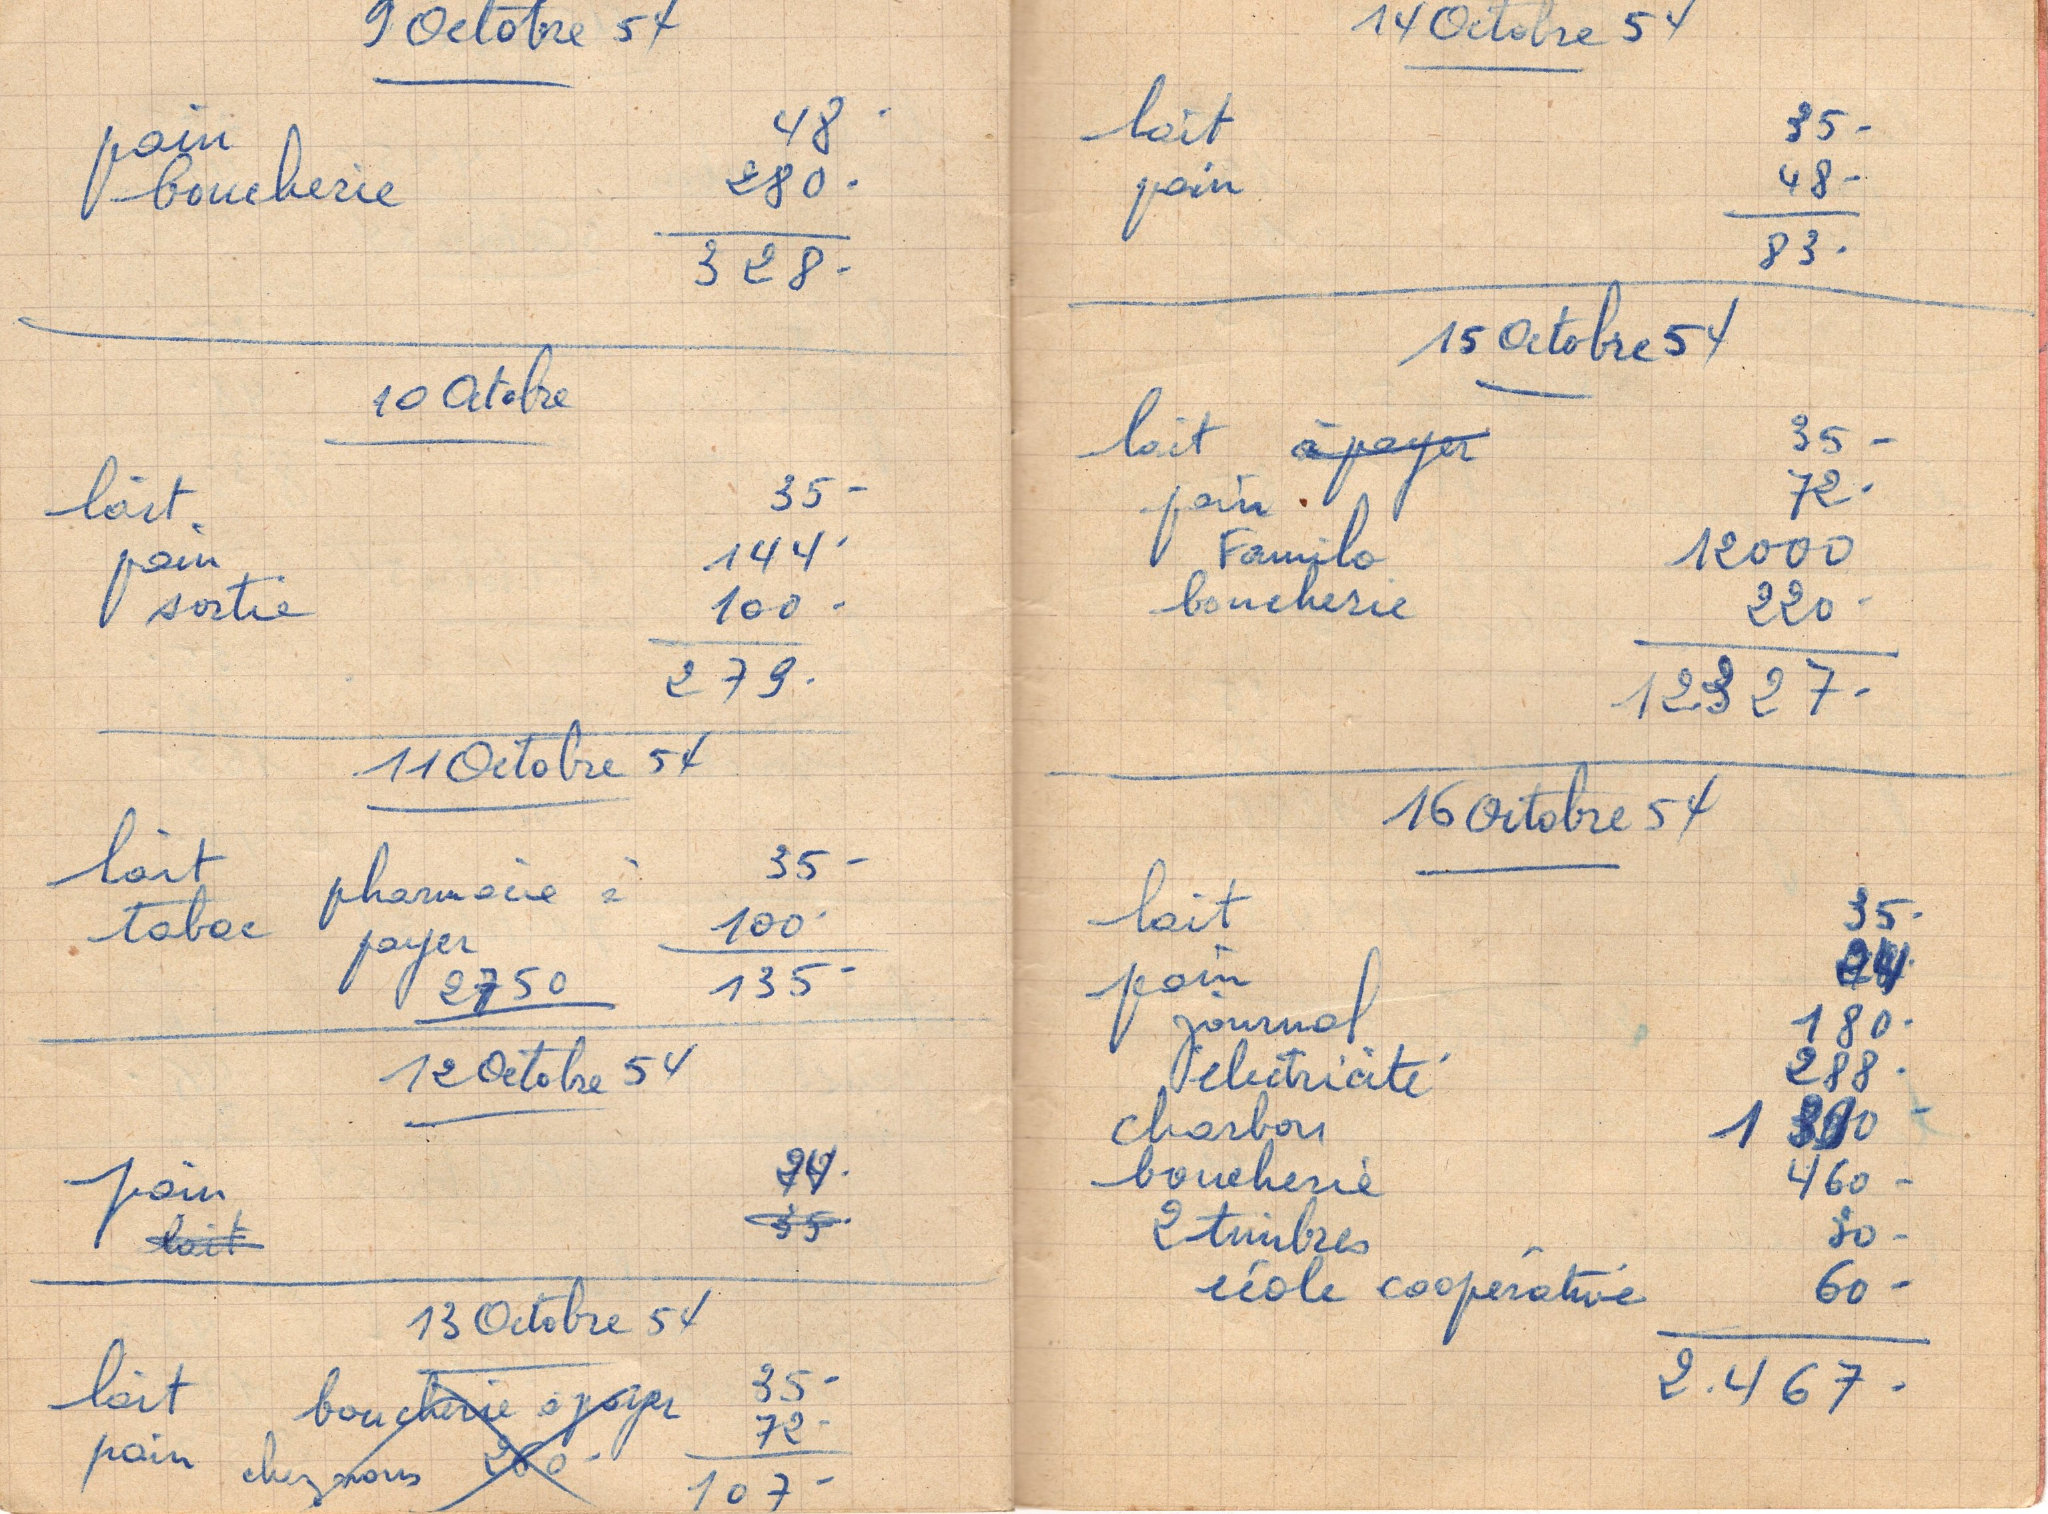 9 Octobre 54
pain 48.
boucherie 280.
328-
10 Octobre
lait. 35-
pain 144.
sortie 100.
279.
11 Octobre 54
lait pharmacie à 35-
tabac payer 100.
2750 135-
12 Octobre 54
pain
lait 35.
13 Octobre 54
lait boucherie à payer 35-
pain chez nous 200- 72-
107-
14 Octobre 54
lait 35-
pain 48-
83.
15 Octobre 54
lait à payer 35-
pain 72.
Familo 12000
boucherie 220-
12327-
16 Octobre 54
lait 35.
pain
journal 180.
électricité 288.
charbon
boucherie 460-
2 timbres
école coopérative 60-
2.467.